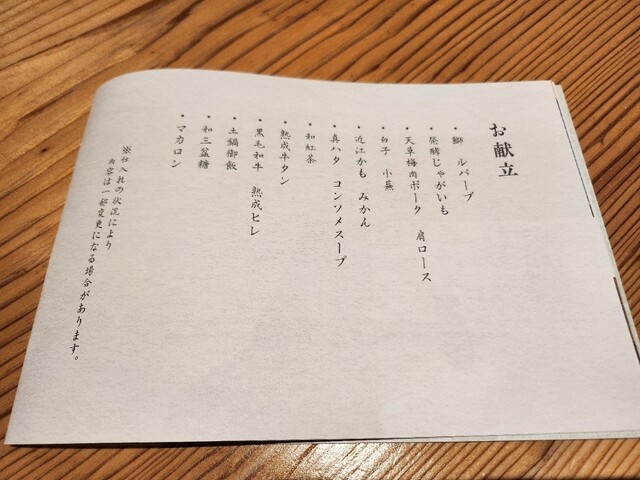 お献立
・鰤　ルバーブ
・発酵じゃがいも
・天草梅肉ポーク　肩ロース
・白子　小蕪
・近江かも　みかん
・真ハタ　コンソメスープ
・和紅茶
・熟成牛タン
・黒毛和牛　熟成ヒレ
・土鍋御飯
・和三盆糖
・マカロン
※仕入れの状況により
内容は一部変更になる場合があります。